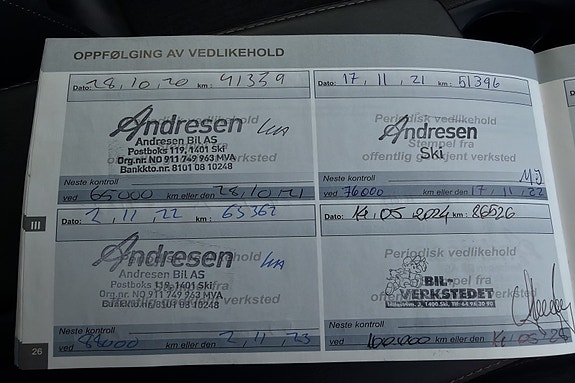 OPPFØLGING AV VEDLIKEHOLD
Dato: 28.10.20 km: 41339
Periodisk vedlikehold
Andresen
Andresen Bil AS
Postboks 119, 1401 Ski
Org.nr. NO 911 749 963 MVA
Bankkto.nr. 8101 08 10248
Neste kontroll
ved 65000 km eller den 28/10/21
Dato: 17.11.21 km: 51396
Periodisk vedlikehold
Andresen
Stempel fra
Ski
offentlig godkjent verksted
MJ
Neste kontroll
ved 76000 km eller den 17.11.22
Dato: 2.11.22 km: 65362
Periodisk vedlikehold
Andresen
Andresen Bil AS
Postboks 119, 1401 Ski
Org.nr. NO 911 749 963 MVA
Bankkto.nr. 8101 08 10248
Neste kontroll
ved km eller den 2.11.23
Dato: 14.05.2024 km: 86526
Periodisk vedlikehold
Stempel fra
BIL-
VERKSTEDET
Neste kontroll
ved 100.000 km eller den
III
26